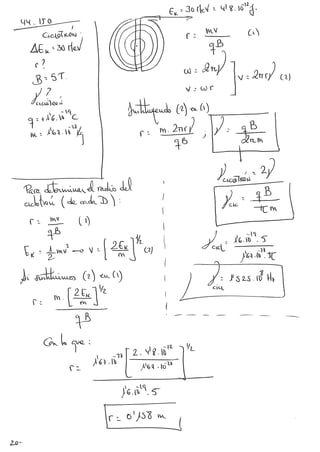 44.150
CICLOTRÓN:
ΔEₖ = 30 MeV
r?
B = 5T.
ν? ciclotrón
q = 1'6.10⁻¹⁹ C
m = 1'67.10⁻²⁷ kg
Eₖ = 30 MeV = 4'8.10⁻¹² J.
r = mv / qB (1)
ω = 2πν
v = ωr
v = 2πrν (2)
Sustituyendo (2) en (1)
r = m. 2πrν / qB ; ν = qB / 2πm
ν ciclotrón = 2ν
ν cicl = qB / πm
ν cicl = 1'6.10⁻¹⁹ . 5 / 1'67.10⁻²⁷ . π
ν cicl = 1'525.10⁸ Hz
Para determinar el radio del
ciclotrón (de cada D):
r = mv / qB (1)
Eₖ = 1/2 mv² → v = [2Eₖ / m]^1/2 (2)
Si sustituimos (2) en (1)
r = m. [2Eₖ / m]^1/2 / qB
Con lo que:
r = 1'67.10⁻²⁷ [2. 4'8.10⁻¹² / 1'67.10⁻²⁷]^1/2 / 1'6.10⁻¹⁹ . 5
r = 0'158 m
20-